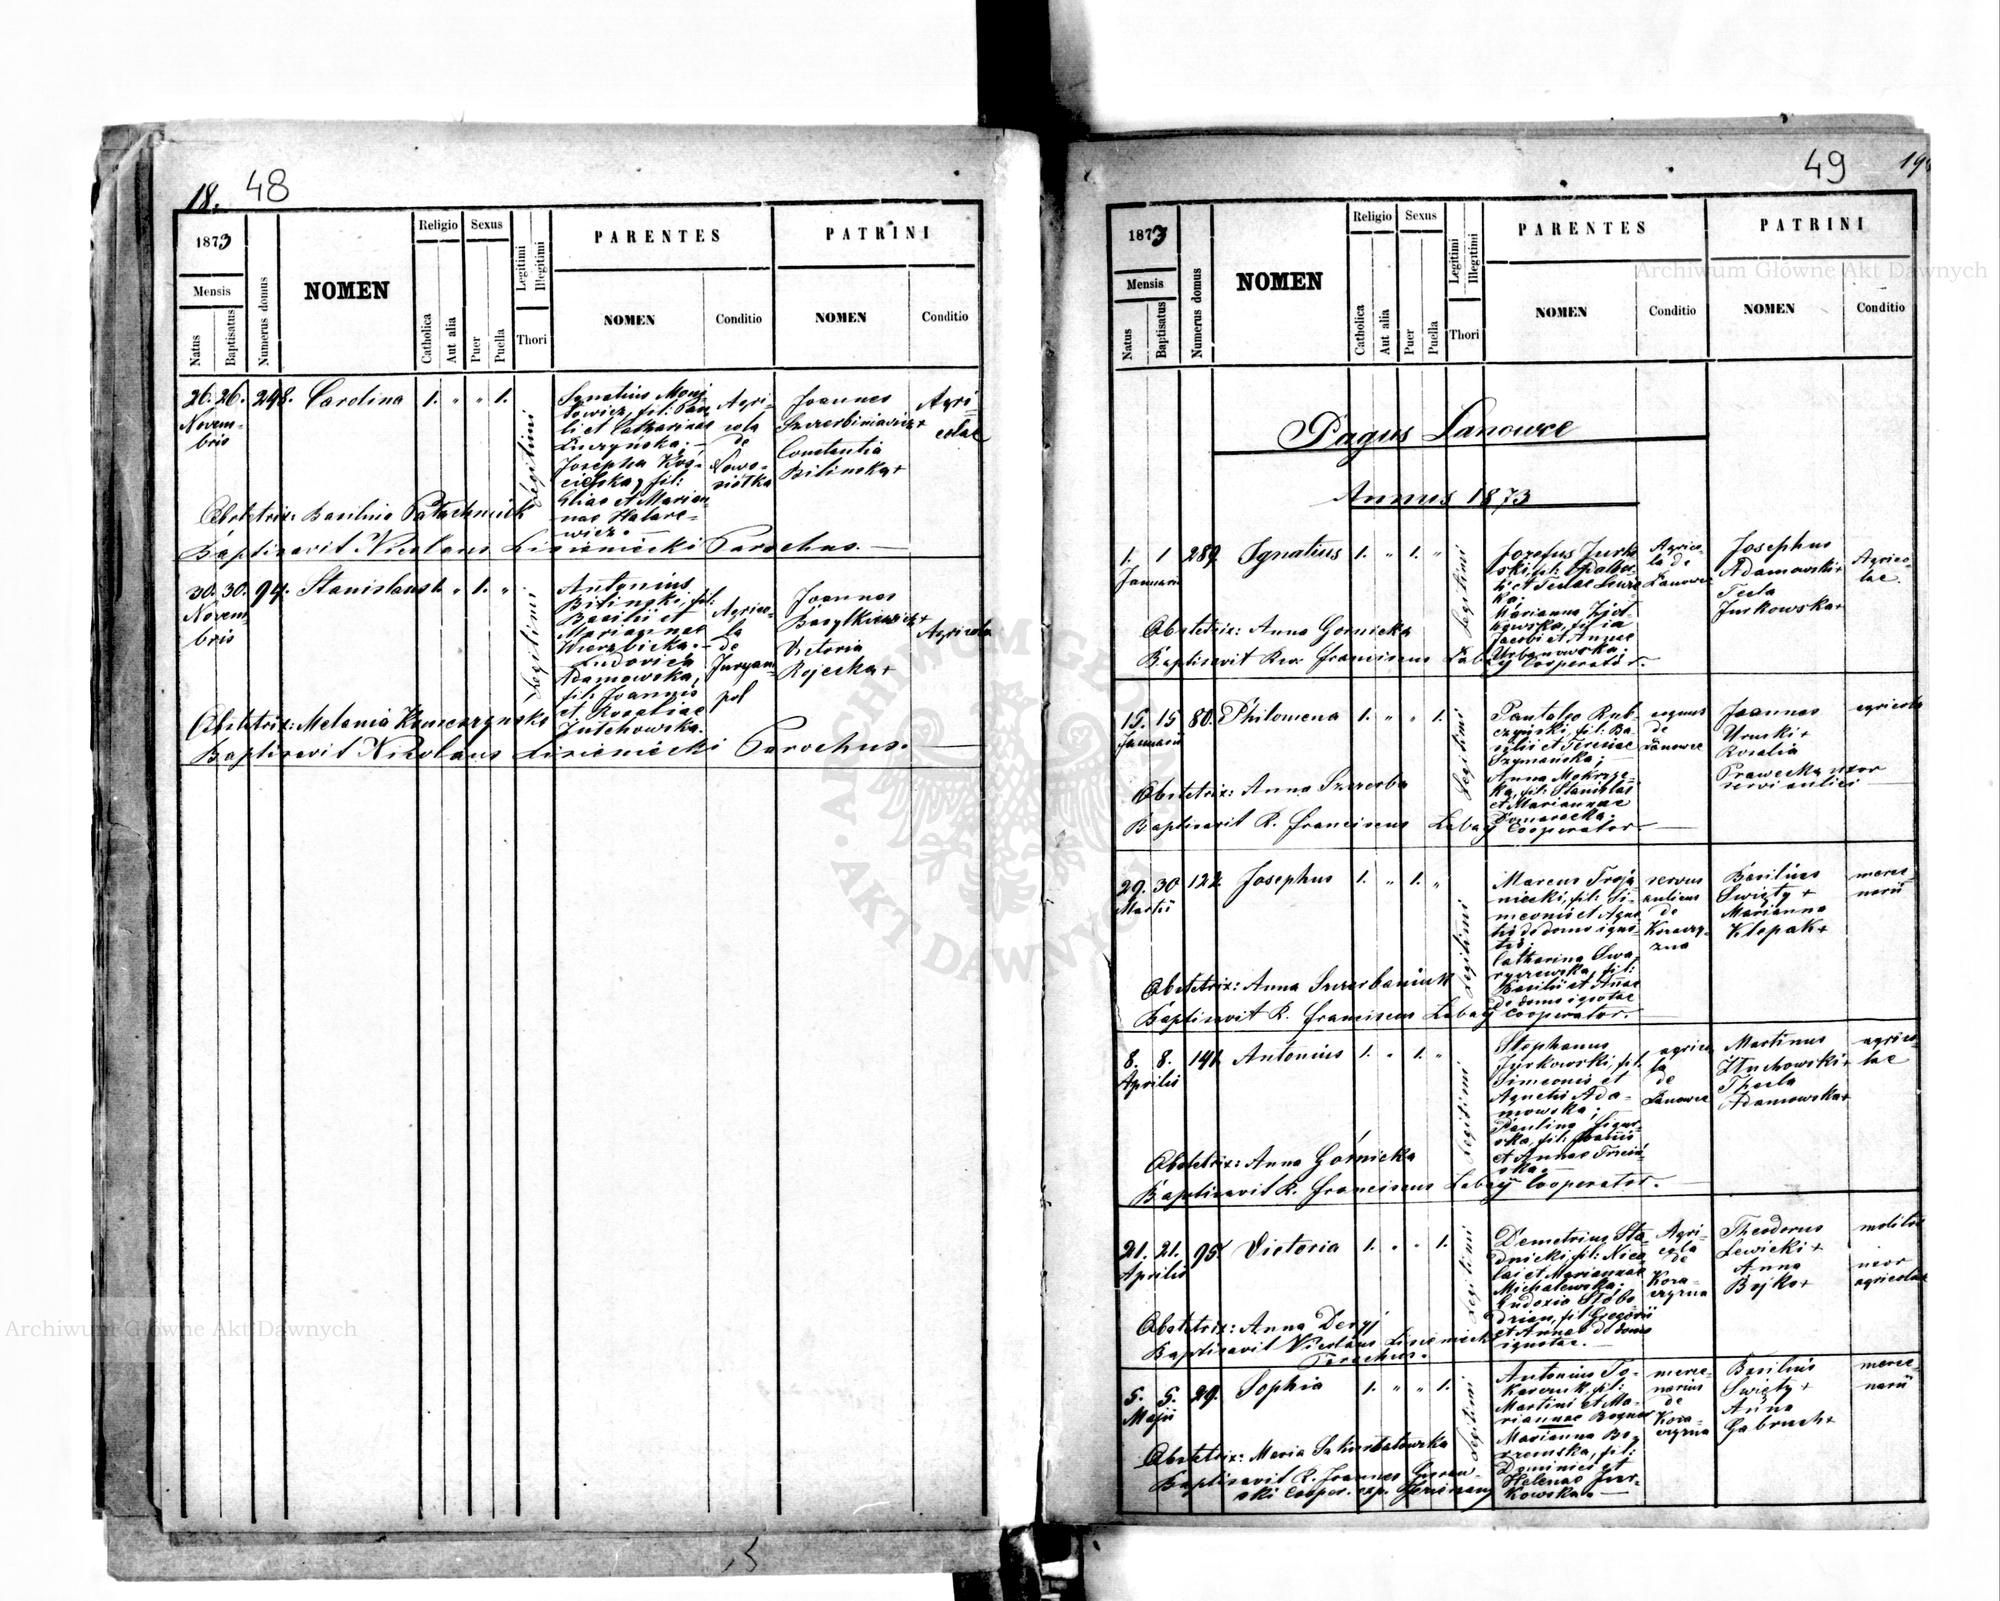 18. 48
1873
Mensis
Natus
Baptisatus
Numerus domus
NOMEN
Religio
Catholica
Aut alia
Sexus
Puer
Puella
Legitimi
Illegitimi
Thori
PARENTES
NOMEN
Conditio
PATRINI
NOMEN
Conditio
26. 26. 248. Carolina 1. " " 1.
Novem-
bris
Legitimi
Ignatius Moni-
lowicz, fil: Pau-
li et Catharinae
Josepha Kos-
cielska, fil:
Eliae et Marian-
nae Halare-
wicz.
Agri-
cola
de
Nowo-
siółka
Joannes
Constantia
Bilinska+
Agri-
colae
Obstetrix: Basilia
Baptisavit Nicolaus Lisieniecki Parochus.
30. 30. 94. Stanislaus 1. " 1. "
Novem
bris
Legitimi
Antonius
Bilinski, fil:
Basilii et
Mariannae
Wierzbicka.
Ludovica
Adamowska,
fil: Joannis
et Rosaliae
Żulchowska.
Agrico-
la
de
Juryam-
pol
Joannes
Victoria
Rojecka+
Agricolae
Obstetrix: Melania
Baptisavit Nikolaus Lisieniecki Parochus.
49
1873
Mensis
Natus
Baptisatus
Numerus domus
NOMEN
Religio
Catholica
Aut alia
Sexus
Puer
Puella
Legitimi
Illegitimi
Thori
PARENTES
NOMEN
Conditio
PATRINI
NOMEN
Conditio
Pagus Łanowce
Annus 1873
1. 1 289. Ignatius 1. " 1. "
Januarii
Legitimi
Josefus Jurko-
ski, fil:
ka;
Marianna
Jacobi et Annae
Urbanowska;
Agrico-
la de
Łanowce
Josephus
Adamowski+
Tecla
Jurkowska+
Agrico-
lae
Obstetrix: Anna Gornicka
Baptisavit Rev. Franciscus Łabay Cooperator.
15. 15 80. Philomena 1. " " 1.
Januarii
Legitimi
Pantaleo Rub-
czynski, fil: Ba-
silii et Teresiae
Szymańska;
Anna Mokrzyc-
ka, fil: Stanislai
et Mariannae
Domaracka.
de
Łanowce
Joannes
Uruski+
Rosalia
Prawecka uxor
servi aulici
agricola
Obstetrix: Anna Szczerba
Baptisavit R. Franciscus Łabay Cooperator.
29. 30 122. Josephus 1. " 1. "
Martii
Legitimi
Marcus Troja-
niecki, fil: Si-
meonis et Agne-
tis de domo igno-
tae;
Catharina Swa-
ryczewska, fil:
Basilii et Annae
de domo ignotae
servus
aulicus
de
Korowy-
zna
Basilius
Swięty+
Marianna
Klepak+
merce-
narii
Obstetrix: Anna Szczerbaniuk
Baptisavit R. Franciscus Łabay Cooperator.
8. 8. 141. Antonius 1. " 1. "
Aprilis
Legitimi
Stephanus
Jurkowski, fil:
Simeonis et
Agnetis Ada-
mowska;
Paulina Figur-
ska, fil: Joannis
et Annae
ska.
agrico-
la
de
Łanowce
Martinus
Żłuchowski+
Thecla
Adamowska+
agrico-
lae
Obstetrix: Anna Górnicka
Baptisavit R. Franciscus Łabay Cooperator.
21. 21. 95. Victoria 1. " " 1.
Aprilis
Legitimi
Demetrius Sta-
dnicki, fil: Nico-
lai et Mariannae
Michalewska;
Eudoxia Słobo-
dzian, fil: Gregorii
et Annae de domo
ignotae.
Agri-
cola
de
Koro-
czyzna
Theodorus
Lewicki+
Anna
Bojko+
molitor
uxor
agricolae
Obstetrix: Anna Deryj
Baptisavit Nicolaus Lisieniecki
Parochus.
5. 5. 29. Sophia 1. " " 1.
Maji
Legitimi
Antonius To-
karczuk, fil:
Martini et Ma-
riannae
Marianna Bog-
Dominici et
Helenae Jur-
kowska.
merce-
narius
de
Basilius
Swięty+
Anna
Gabruch+
merce-
narii
Obstetrix: Maria
Baptisavit R. Joannes
ski Cooper. exp.
Archiwum Główne Akt Dawnych
ARCHIWUM GŁÓWNE · AKT DAWNYCH ·
Archiwum Główne Akt Dawnych